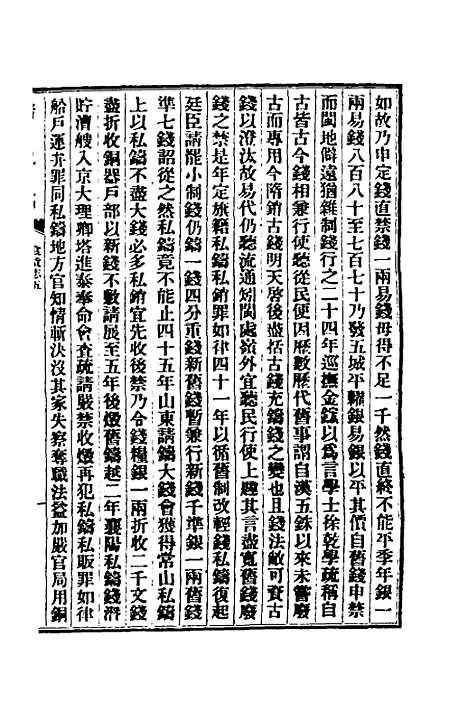 如故乃申定錢直禁錢一兩易錢毋得不足一千然錢直終不能平季年銀一
兩易錢八百八十至七百七十乃發五城平糶銀易銀以平其價自舊錢申禁
而閩地僻遠猶雜制錢行之二十四年巡撫金鋐以爲言學士徐乾學疏稱自
古皆古今錢相兼行使聽從民便因歷數歷代舊事謂自漢五銖以來未嘗廢
古而專用今隋銷古錢明天啓後盡括古錢充鑄錢之變也且錢法敝可資古
錢以澄汰故易代仍聽流通矧閩處嶺外宜聽民行使上韙其言盡寬舊錢廢
錢之禁是年定旗籍私鑄私銷罪如律四十一年以循舊制改輕錢私鑄復起
廷臣請罷小制錢仍鑄一錢四分重錢新舊錢暫兼行新錢千準銀一兩舊錢
準七錢詔從之然私鑄竟不能止四十五年山東請鑄大錢會獲得常山私鑄
上以私鑄不盡大錢必多私銷宜先收後禁乃令錢糧銀一兩折收二千文錢
盡折收銅器戶部以新錢不敷請展至五年後燬舊錢越二年襄陽私鑄錢潛
貯漕艘入京大理卿塔進泰奉命會查疏請嚴禁收燬再犯私鑄私販罪如律
船戶運弁罪同私鑄地方官知情斬決沒其家失察奪職法益加嚴官局用銅
食貨志五
一